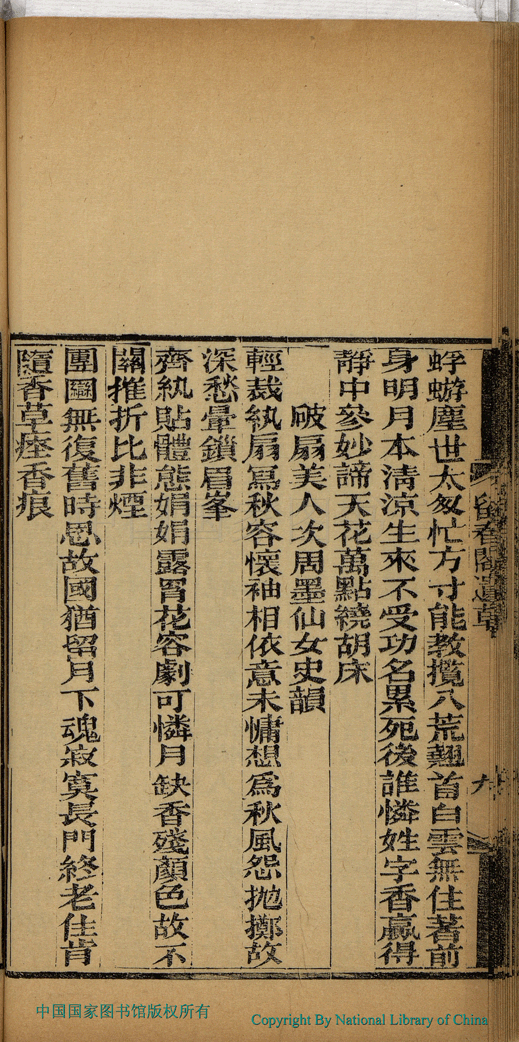 留春閣遺草
九
蜉蝣塵世太匆忙方寸能教攬八荒翹首白雲無住著前
身明月本清涼生來不受功名累死後誰憐姓字香贏得
靜中參妙諦天花萬點繞胡床
破扇美人次周墨仙女史韻
輕裁紈扇寫秋容懷袖相依意未慵想為秋風怨拋擲故
深愁暈鎖眉峯
齊紈貼體態娟娟露冑花容劇可憐月缺香殘顏色故不
關摧折比非煙
團圞無復舊時恩故國猶留月下魂寂寞長門終老住肯
隨香草瘞香痕
中国国家图书馆版权所有
Copyright By National Library of China